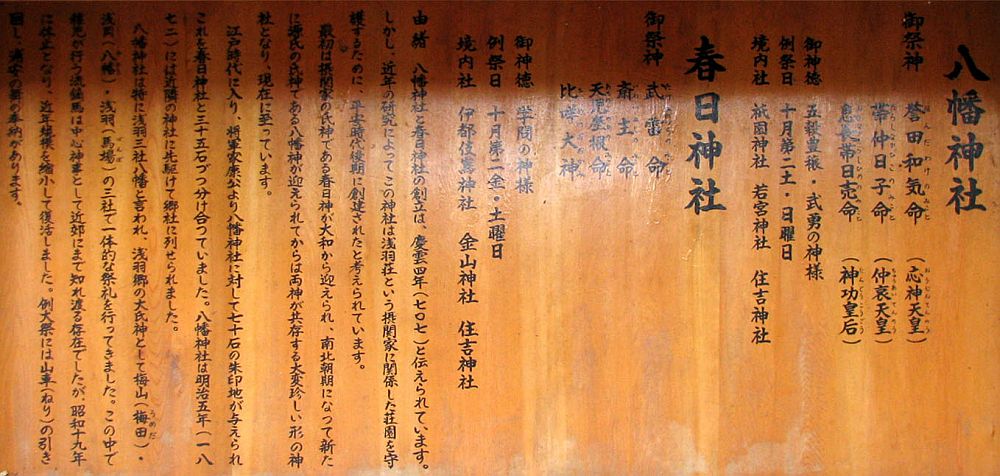 八幡神社
御祭神 誉田和気命 (応神天皇)
帯仲日子命 (仲哀天皇)
息長帯日売命 (神功皇后)
御神徳 五穀豊穣・武勇の神様
例祭日 十月第二土・日曜日
境内社 祇園神社 若宮神社 住吉神社
春日神社
御祭神 武雷命
斎主命
天児屋根命
比咩大神
御神徳 学問の神様
例祭日 十月第二金・土曜日
境内社 伊都伎嶌神社 金山神社 住吉神社
由緒 八幡神社と春日神社の創立は、慶雲四年(七〇七)と伝えられています。
しかし、近年の研究によってこの神社は浅羽荘という摂関家に関係した荘園を守
護するために、平安時代後期に創建されたと考えられています。
最初は摂関家の氏神である春日神が大和から迎えられ、南北朝期になって新た
に源氏の氏神である八幡神が迎えられてからは両神が共存する大変珍しい形の神
社となり、現在に至っています。
江戸時代に入り、将軍家康公より八幡神社に対して七十石の朱印地が与えられ
これを春日神社と三十五石づつ分け合っていました。八幡神社は明治五年(一八
七二)には近隣の神社に先駆けて郷社に列せられました。
八幡神社は特に浅羽三社八幡と言われ、浅羽郷の大氏神として梅山(梅田)・
浅岡(八幡)・浅羽(馬場)の三社で一体的な祭礼を行ってきました。この中で
稚児が行う流鏑馬は中心神事として近郊にまで知れ渡る存在でしたが、昭和十九年
に休止となり、近年規模を縮小して復活しました。例大祭には山車(ねり)の引き
回し、浦安の舞の奉納があります。